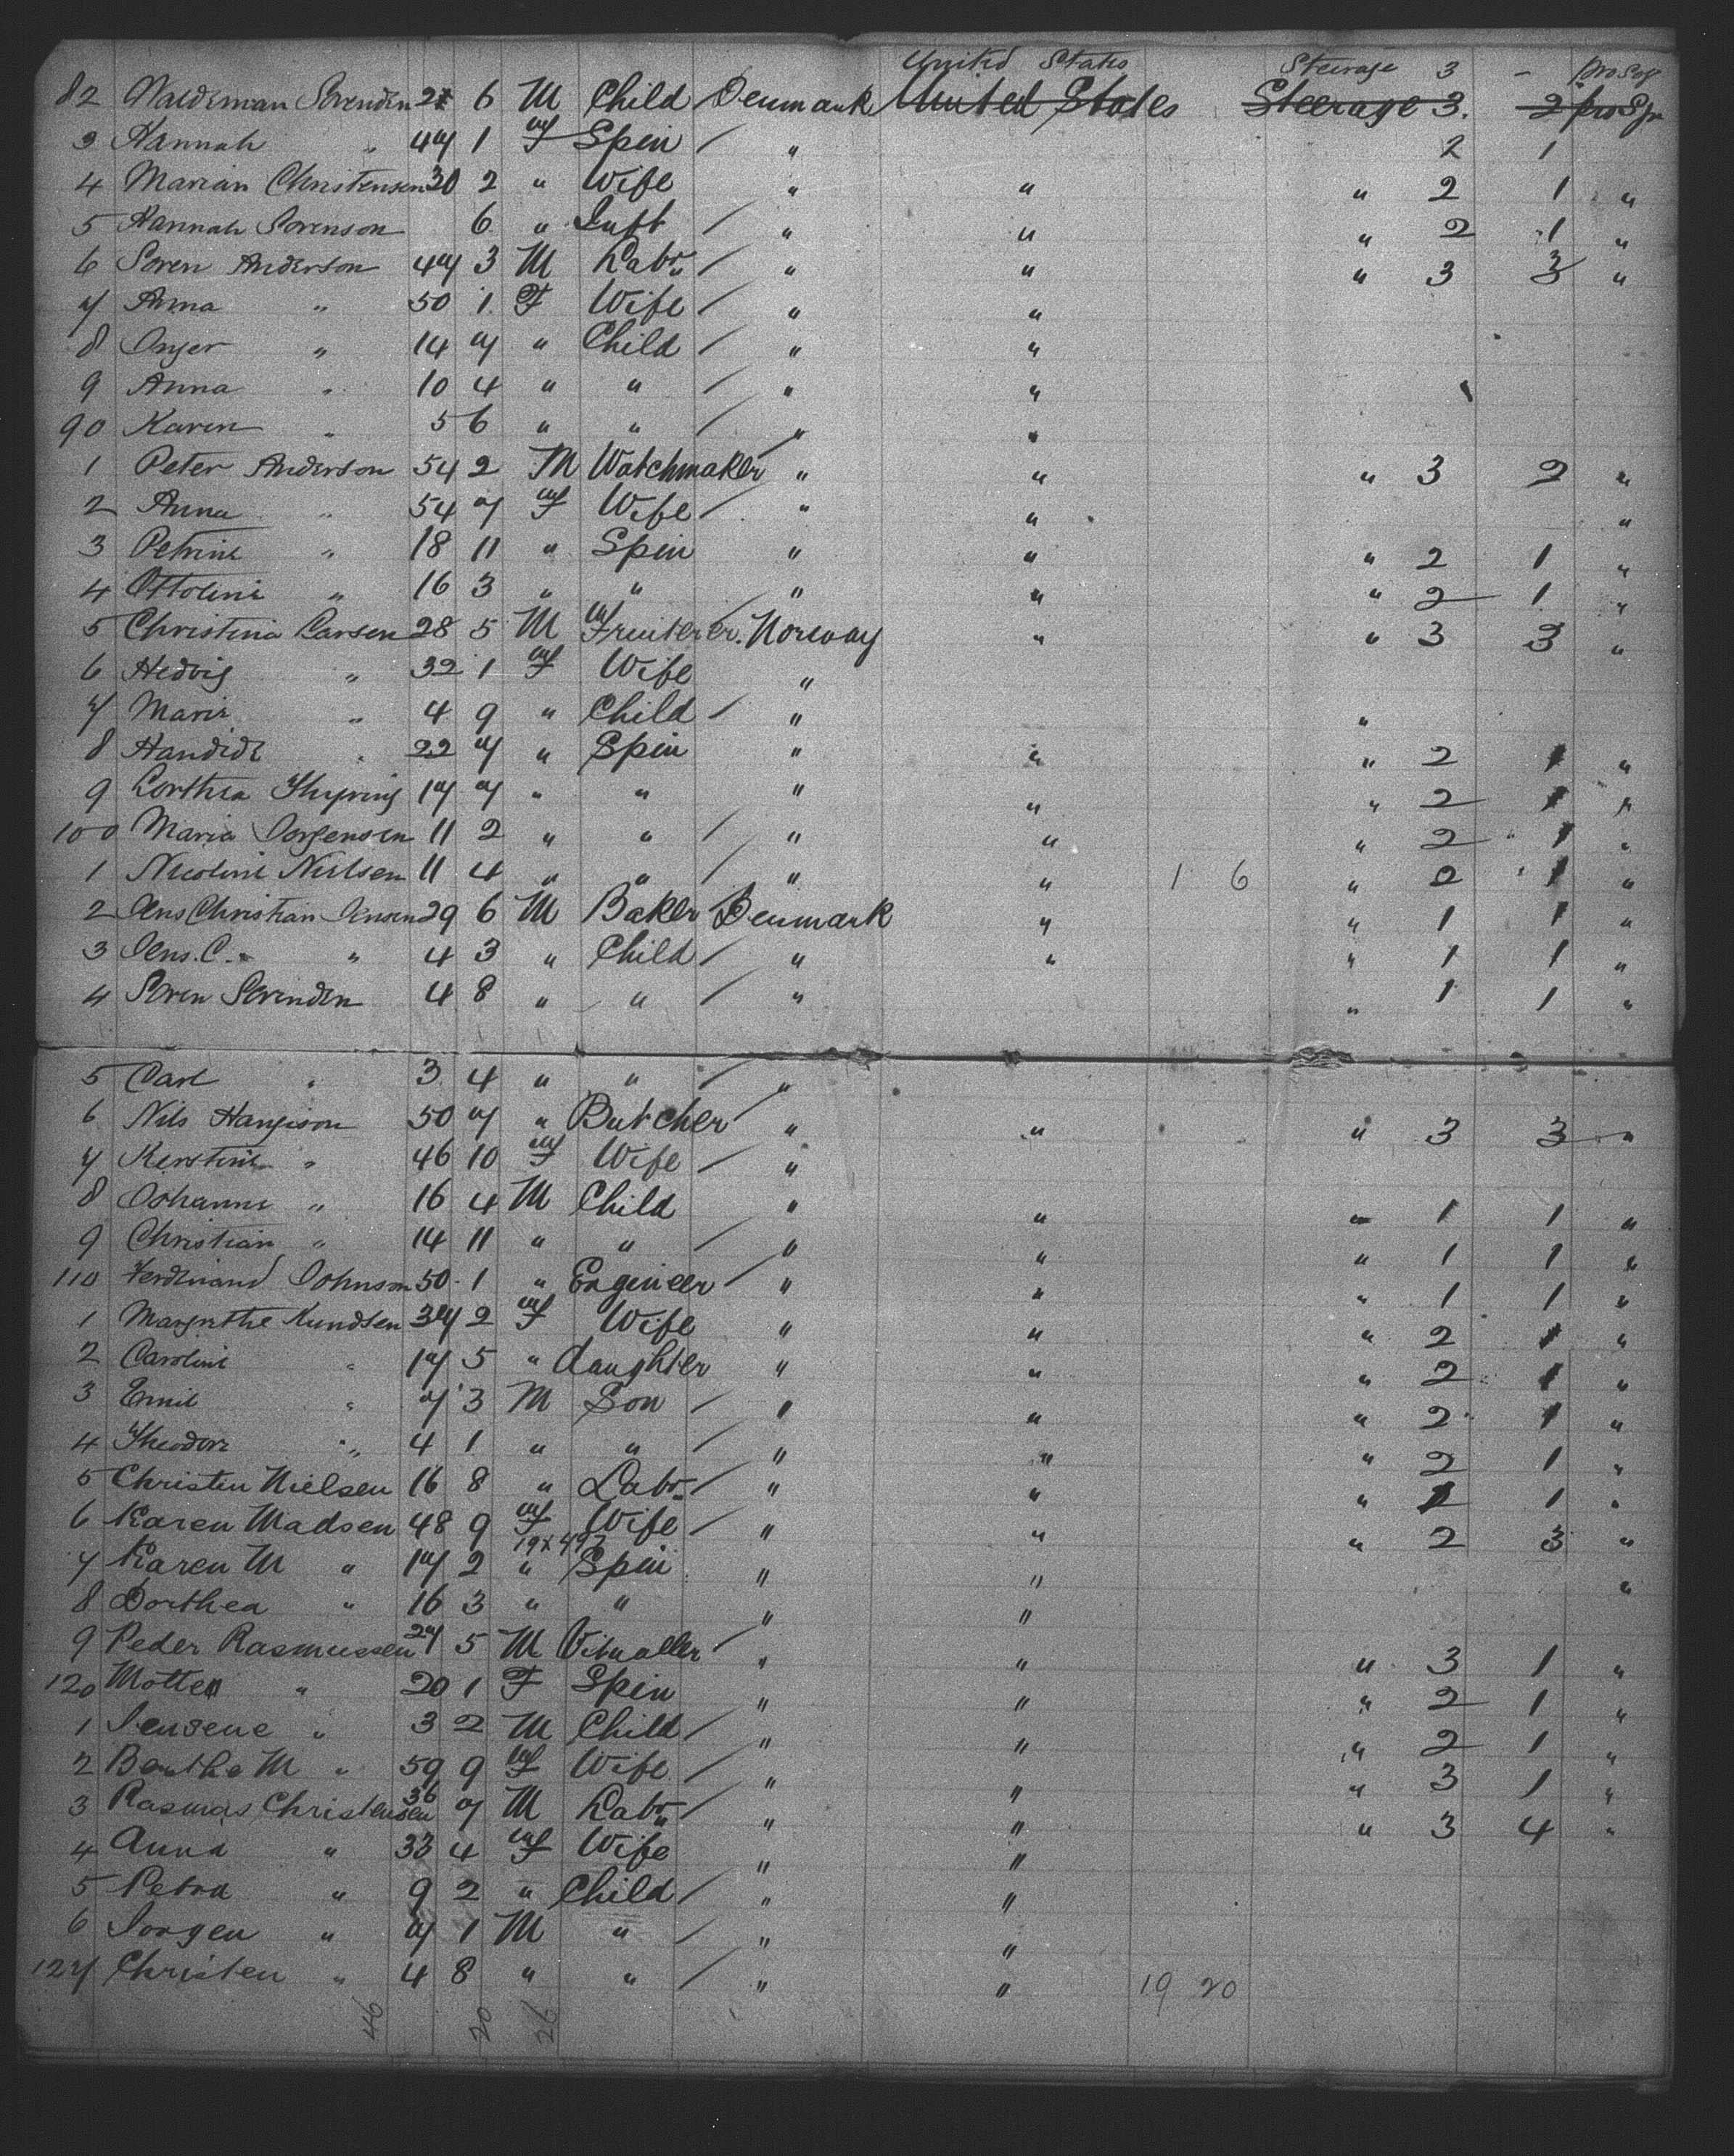 United States Steerage 3 - pro Soj
82 Valdiman Sorensen 2 6 M Child Denmark United States Steerage 3. 2 pro Sjr
3 Hannah " 47 1 F Spin / " 2 1
4 Marian Christensen 30 2 " Wife " " " 2 1 "
5 Hannah Sorenson 6 " Inft / " " " 2 1 "
6 Soren Anderson 47 3 M Labr / " " " 3 3 "
7 Anna " 50 1 F Wife / " "
8 Inger " 14 7 " Child / " "
9 Anna " 10 4 " " / " "
90 Karen " 5 6 " " / " "
1 Peter Anderson 54 2 M Watchmaker " " " 3 2 "
2 Anna " 54 7 F Wife / " " "
3 Petrine " 18 11 " Spin " " " 2 1 "
4 Ottoline " 16 3 " " " " " 2 1 "
5 Christina Larsen 28 5 M Fruiterer Norway " " 3 3 "
6 Hedvig " 32 1 F Wife "
7 Marie " 4 9 " Child / " "
8 " 22 7 " Spin " " " 2 1 "
9 Lorthea Thyring 17 7 " " " " " 2 1 "
100 Maria Jorgensen 11 2 " " / " " " 2 1 "
1 Nicoline Nielsen 11 4 " " / " " 1 6 " 2 1 "
2 Jens Christian Jensen 29 6 M Baker Denmark " " 1 1 "
3 Jens. C. " 4 3 " Child / " " " 1 1 "
4 Soren Sorensen 4 8 " " / " " 1 1 "
5 Carl " 3 4 " " / "
6 Nils 50 7 " Butcher / " " " 3 3 "
7 Kerstine " 46 10 F Wife / "
8 Johanne " 16 4 M Child " " " 1 1 "
9 Christian " 14 11 " " / " " " 1 1 "
110 Ferdinand Johnson 50 1 " Engineer / " " " 1 1 "
1 Margrethe Kundsen 37 2 F Wife " " " 2 1 "
2 Caroline " 17 5 " daughter " " " 2 1 "
3 Emil " 7 3 M Son / " " " 2 1 "
4 Theodore " 4 1 " " / " " " 2 1 "
5 Christen Nielsen 16 8 " Labr / " " " 1 "
6 Karen Madsen 48 9 F Wife / " " " 2 3 "
7 Karen M " 17 2 " Spin " " "
8 Dorthea " 16 3 " " " "
9 Peder Rasmussen 27 5 M Vitualler / " " " 3 1 "
120 Motte " 20 1 F Spin " " " 2 1 "
1 Jensene " 3 2 M Child / " " " 2 1 "
2 Benthe M " 59 9 F Wife / " " " 3 1 "
3 Rasmas Christensen 36 7 M Labr / " " " 3 4 "
4 Anna " 33 4 F Wife " "
5 Petra " 9 2 " Child / " "
6 Jorgen " 7 1 M " / " "
127 Christen " 4 8 " " / " " 19 20
46 20 26